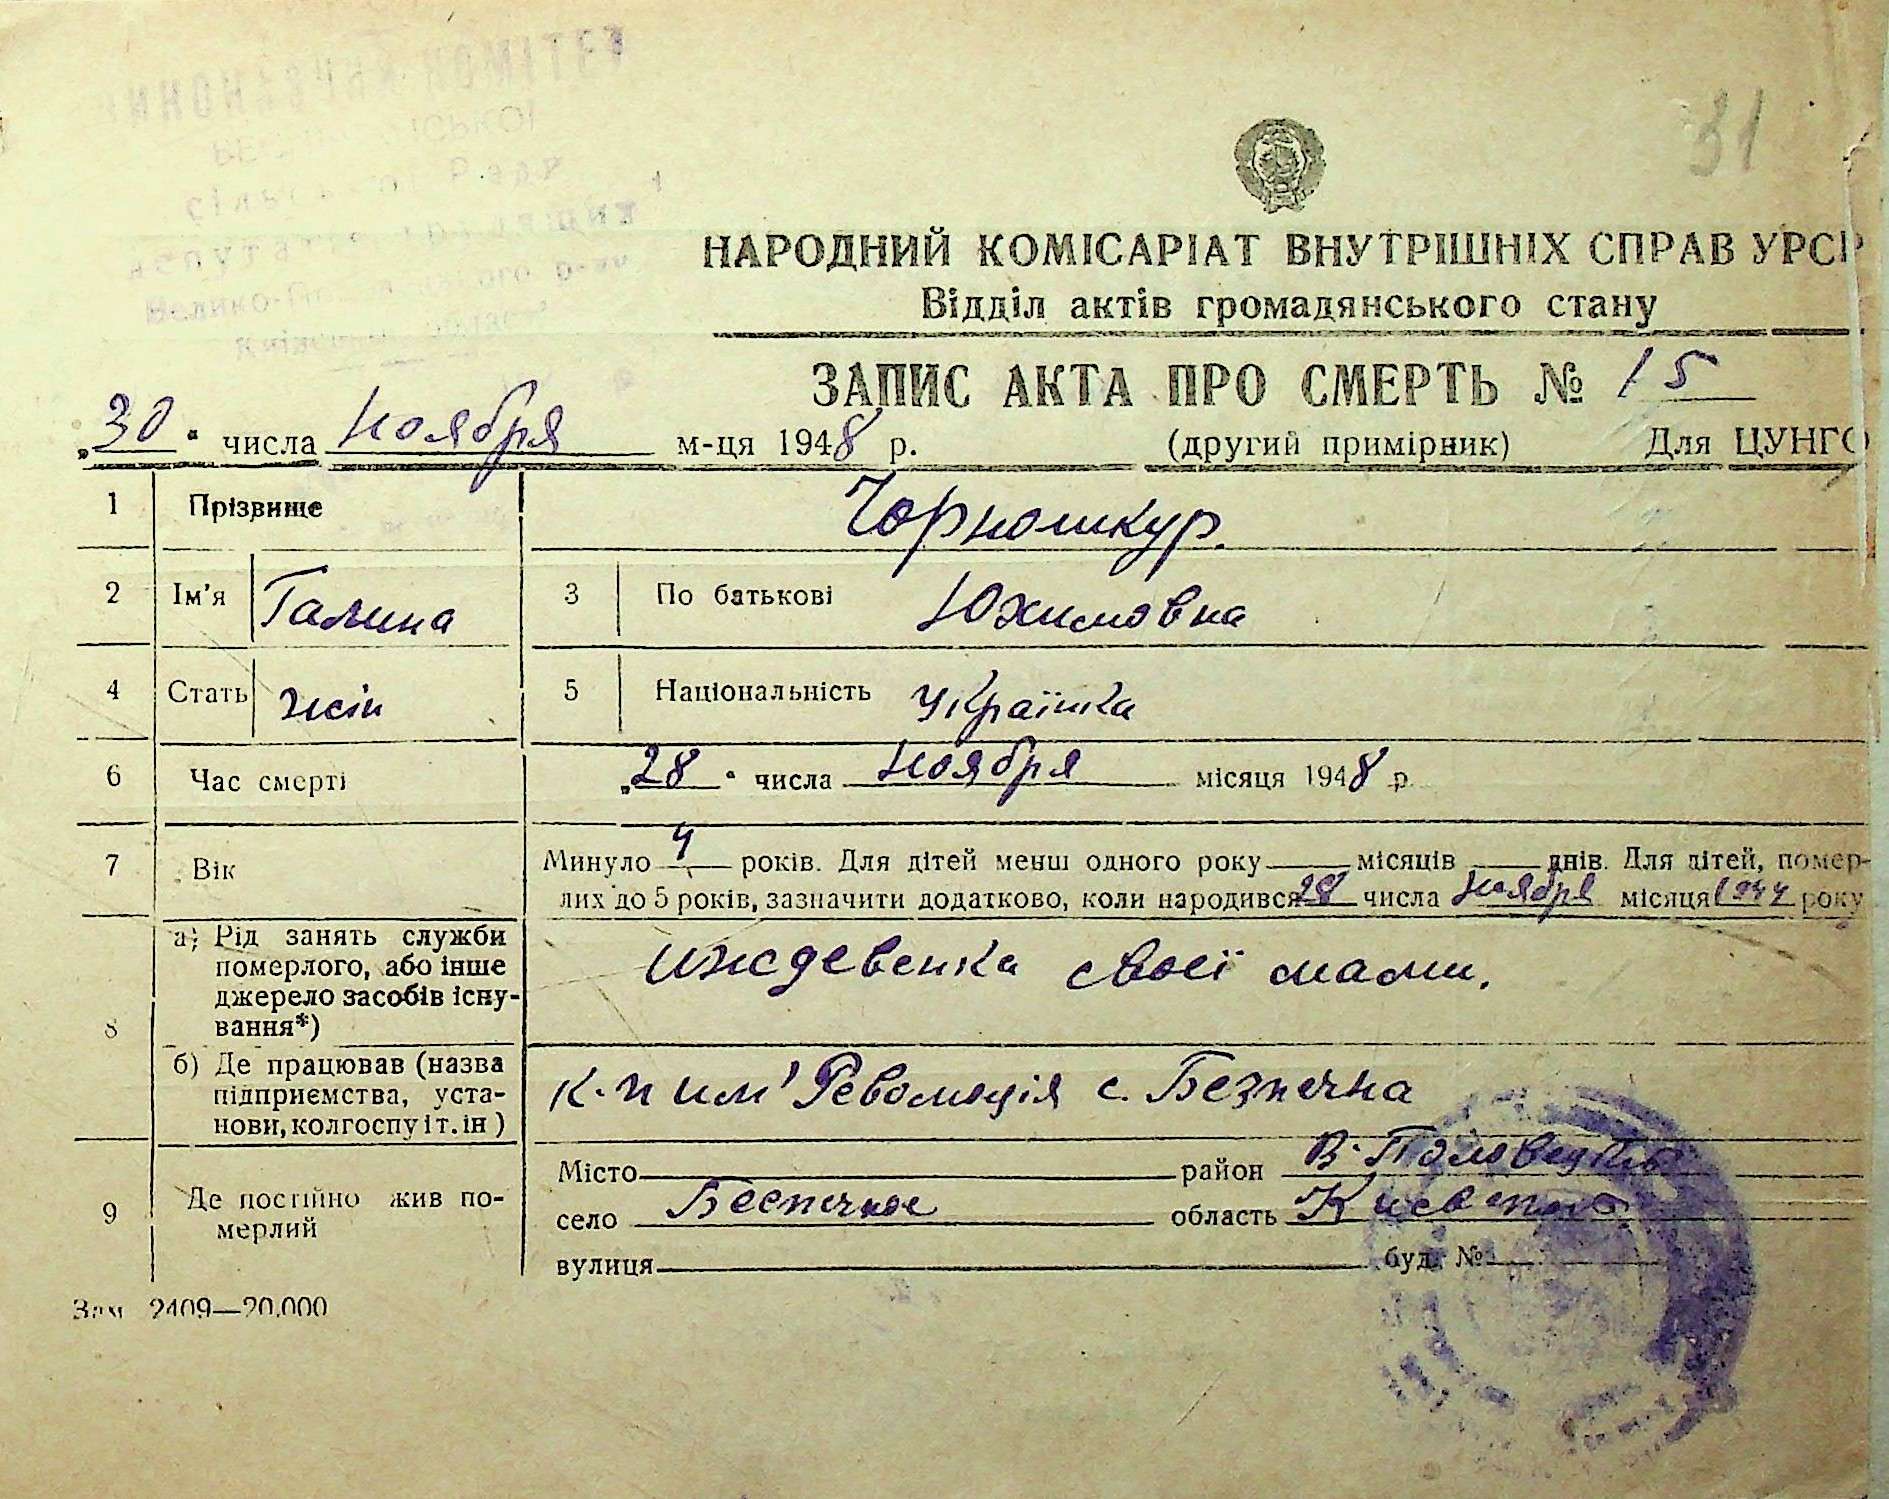 31
НАРОДНИЙ КОМІСАРІАТ ВНУТРІШНІХ СПРАВ УРСР
Відділ актів громадянського стану
ЗАПИС АКТА ПРО СМЕРТЬ № 15
„30“ числа Ноября м-ця 1948 р. (другий примірник) Для ЦУНГО
1 Прізвище Чорношкур.
2 Ім'я Галина 3 По батькові Юхимовна
4 Стать жін 5 Національність Українка
6 Час смерті „28“ числа Ноября місяця 1948 р.
7 Вік Минуло 4 років. Для дітей менш одного року місяців днів. Для дітей, помер-
лих до 5 років, зазначити додатково, коли народився 28 числа Ноября місяця 1944 року
8 а) Рід занять служби
померлого, або інше
джерело засобів існу-
вання*)
иждевенка своєї мами.
б) Де працював (назва
підприємства, уста-
нови, колгоспу і т. ін)
к-п им' Революція с. Безпечна
9 Де постійно жив по-
мерлий
Місто район В-Половецкого
село Беспечное область Киевская
вулиця буд. №
Зам 2409—20.000